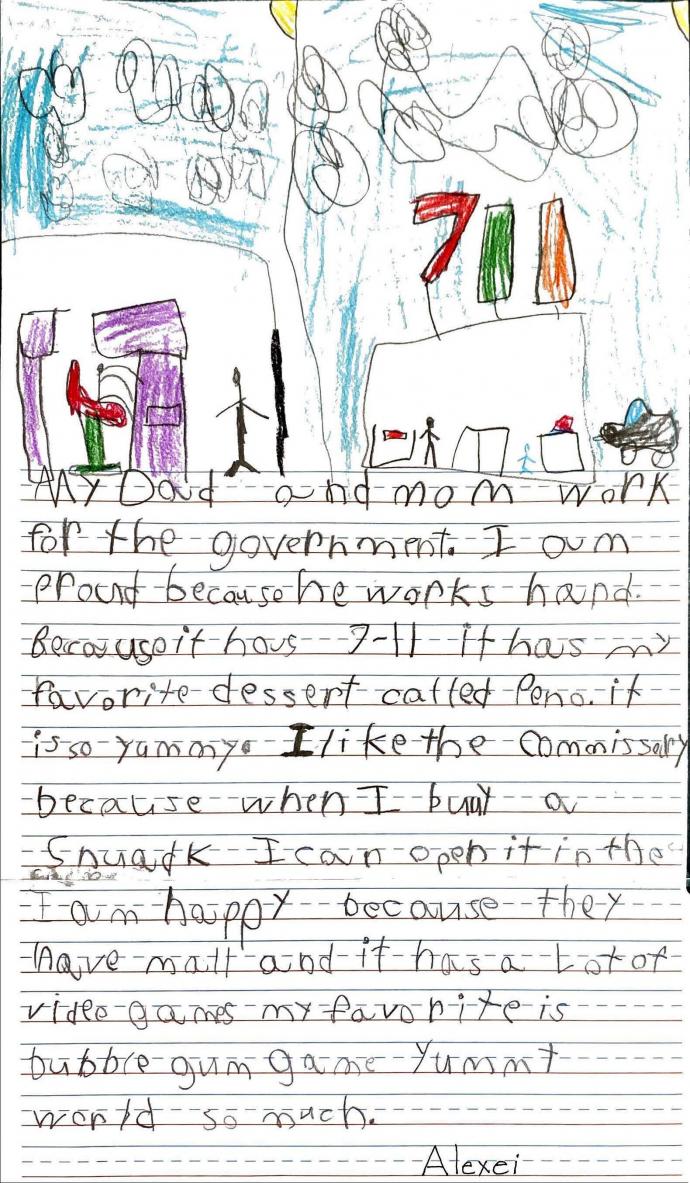 7 1 1
My Dad and mom work
for the government. I am
proud because he works hard.
Because it has 7-11 it has my
favorite dessert called Peno. it
is so yummy. I like the Commissary
because when I buuy a
Snuadk I can open it in the
I am happy because they
have mall and it has a Lot of
video games my favorite is
bubble gum game Yummt
world so much.
Alexei